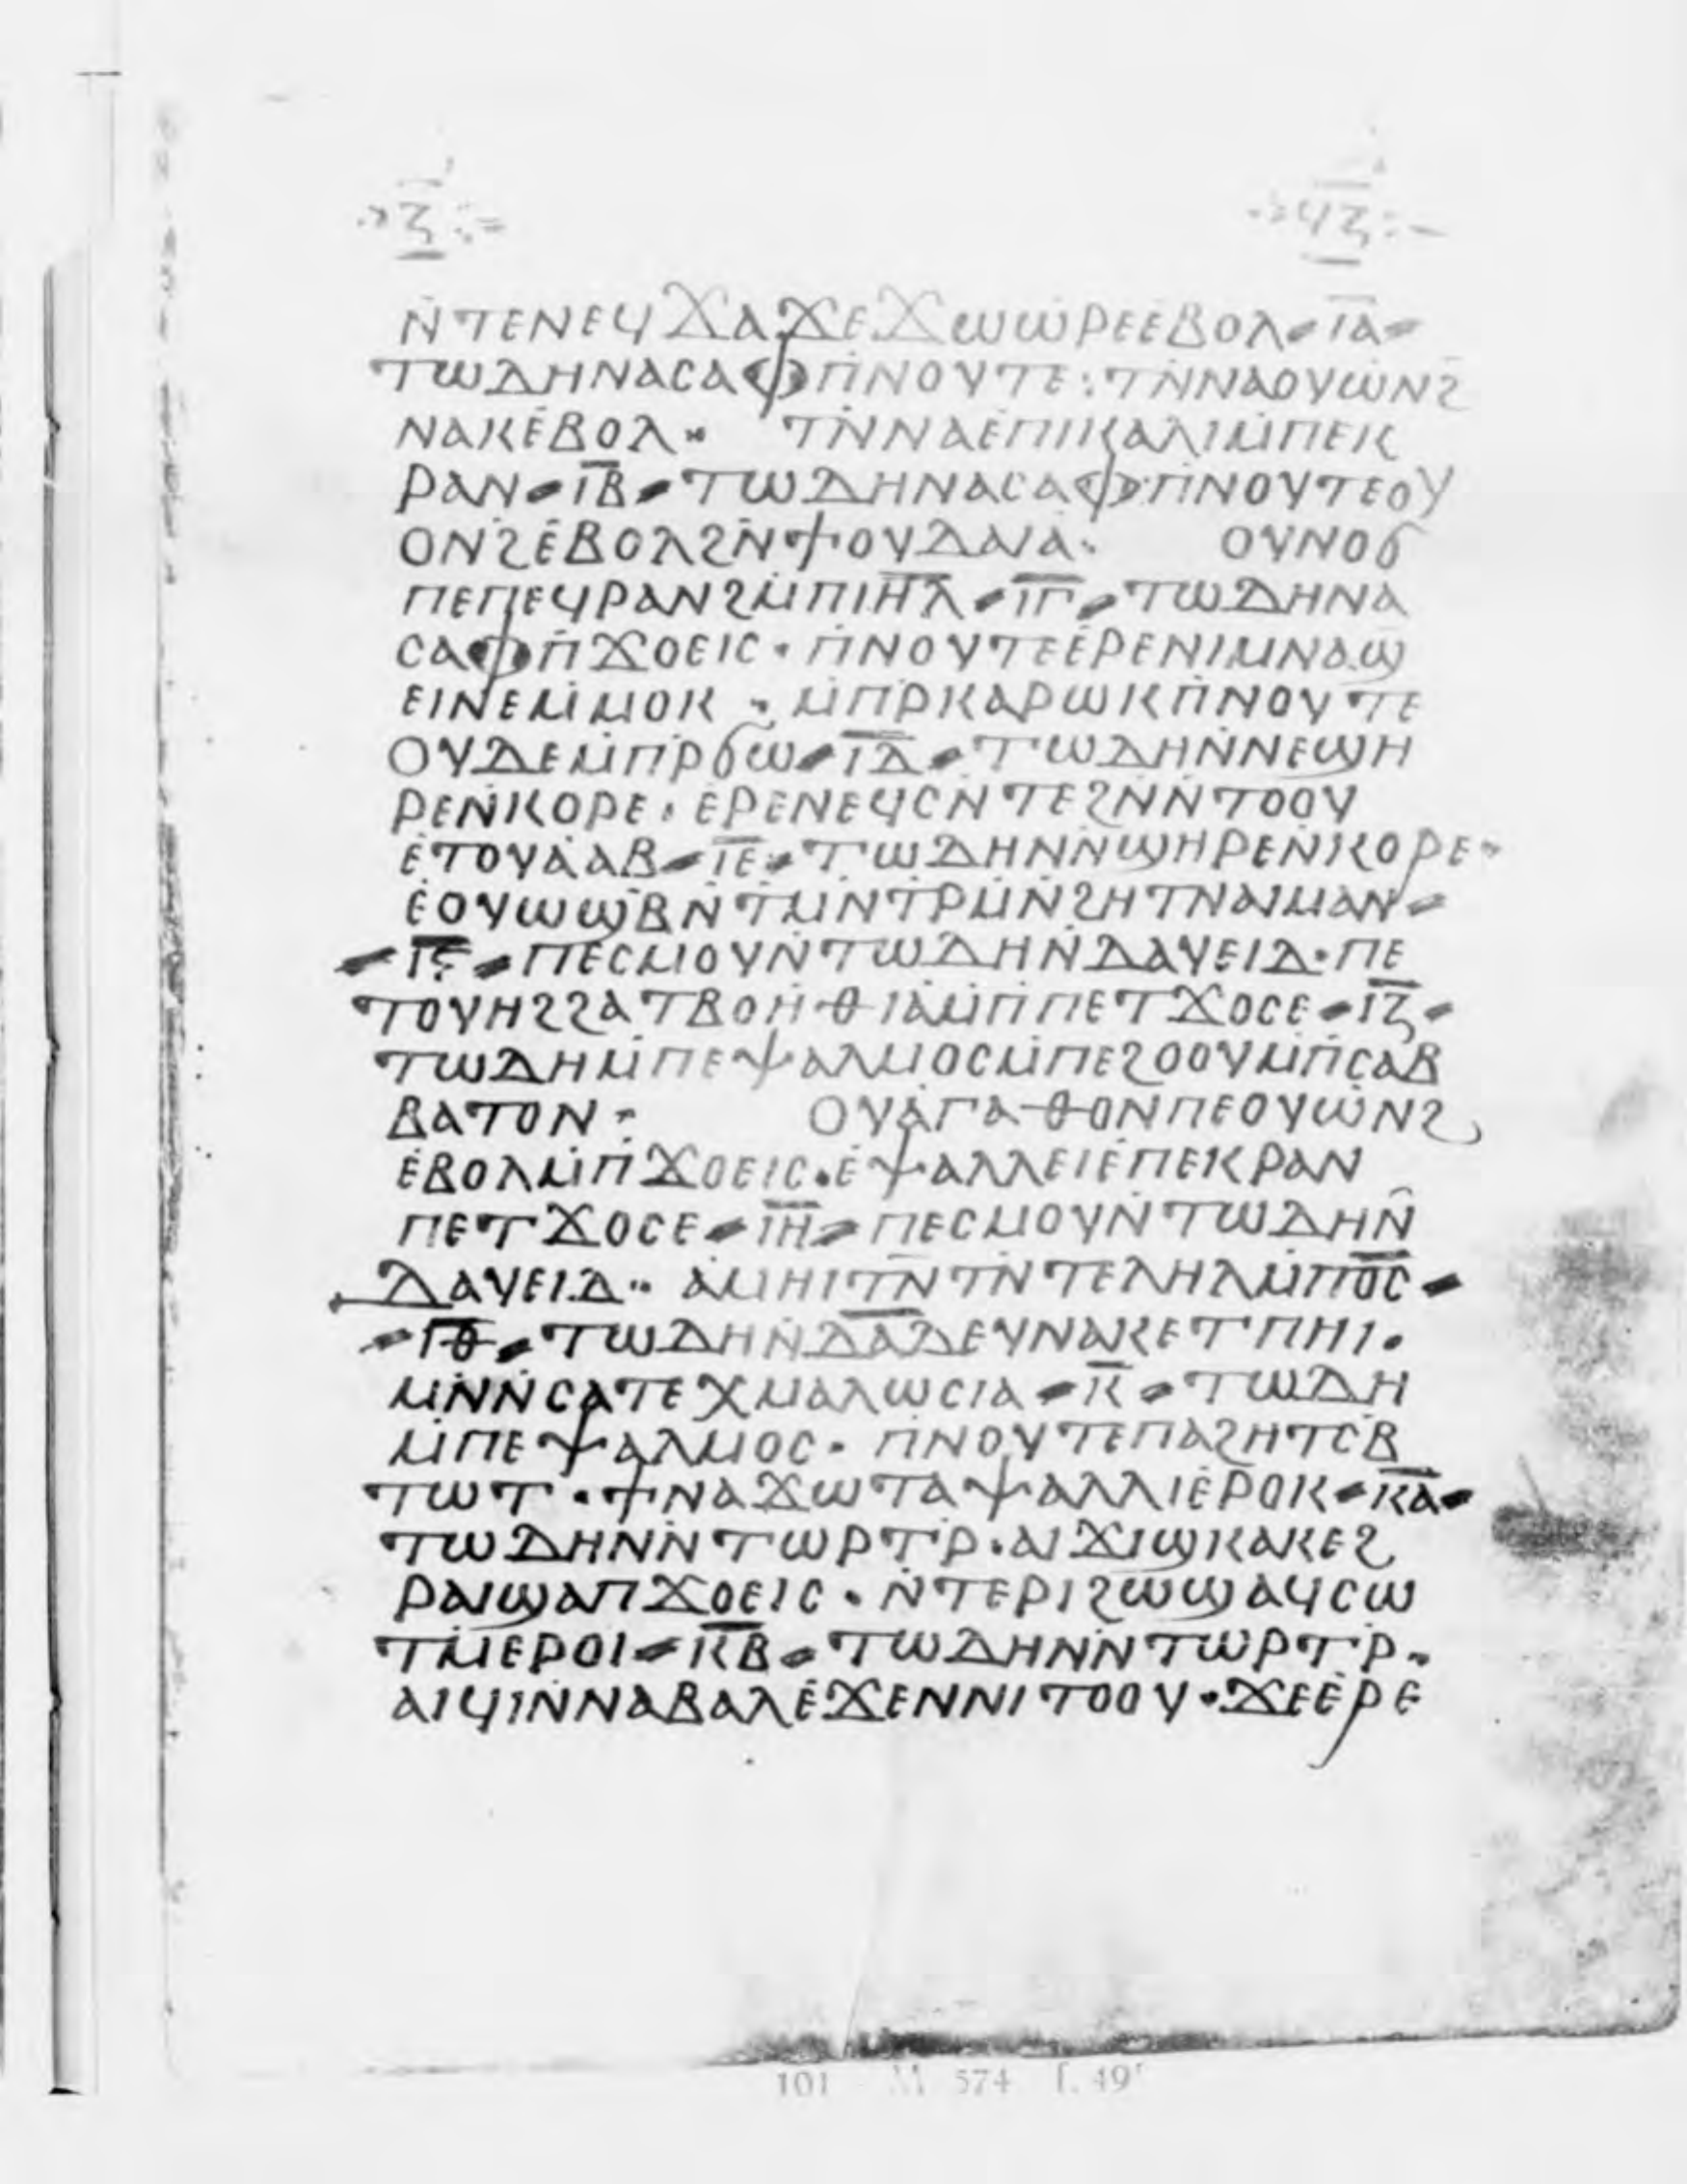 ⲍ̅ ϥⲍ̅
ⲛ̇ⲧⲉⲛⲉϥϫⲁϫⲉϫⲱⲱⲣⲉⲉ̇ⲃⲟⲗ ⲓ̅ⲁ̅
ⲧⲱⲇⲏⲛⲁⲥⲁⲫⲡ̇ⲛⲟⲩⲧⲉ: ⲧⲛ̇ⲛⲁⲟⲩⲱⲛϩ
ⲛⲁⲕⲉ̇ⲃⲟⲗ· ⲧⲛ̇ⲛⲁⲉ̇ⲡⲓⲕⲁⲗⲓⲙ̇ⲡⲉⲕ
ⲣⲁⲛ ⲓ̅ⲃ̅ ⲧⲱⲇⲏⲛⲁⲥⲁⲫ·ⲡ̇ⲛⲟⲩⲧⲉⲟⲩ
ⲟⲛϩⲉ̇ⲃⲟⲗϩⲛ̇ϯⲟⲩⲇⲁⲓⲁ· ⲟⲩⲛⲟϭ
ⲡⲉⲡⲉϥⲣⲁⲛϩⲙ̇ⲡⲓⲏ̅ⲗ̅ ⲓ̅ⲅ̅ ⲧⲱⲇⲏⲛⲁ
ⲥⲁⲫⲡ̇ϫⲟⲉⲓⲥ· ⲡ̇ⲛⲟⲩⲧⲉⲉ̇ⲣⲉⲛⲓⲙⲛⲁϣ
ⲉⲓⲛⲉⲙ̇ⲙⲟⲕ· ⲙ̇ⲡⲣ̇ⲕⲁⲣⲱⲕⲡ̇ⲛⲟⲩⲧⲉ
ⲟⲩⲇⲉⲙ̇ⲡⲣ̇ϭⲱ ⲓ̅ⲇ̅ ⲧⲱⲇⲏⲛ̇ⲛⲉϣⲏ
ⲣⲉⲛ̇ⲕⲟⲣⲉ· ⲉ̇ⲣⲉⲛⲉϥⲥⲛ̇ⲧⲉϩⲛ̇ⲛ̇ⲧⲟⲟⲩ
ⲉ̇ⲧⲟⲩⲁ̇ⲁⲃ ⲓ̅ⲉ̅ ⲧⲱⲇⲏⲛ̇ⲛ̇ϣⲏⲣⲉⲛ̇ⲕⲟⲣⲉ·
ⲉ̇ⲟⲩⲱϣⲃ̇ⲛ̇ⲧⲙ̇ⲛⲧⲣⲙ̇ⲛ̇ϩⲏⲧⲛⲁⲓⲙⲁⲛ
ⲓ̅ⲋ̅ ⲡⲉⲥⲙⲟⲩⲛ̇ⲧⲱⲇⲏⲛ̇ⲇⲁⲩⲉⲓⲇ·ⲡⲉ
ⲧⲟⲩⲏϩϩⲁⲧⲃⲟⲏ̇ⲑⲓⲁⲙ̇ⲡ̇ⲡⲉⲧϫⲟⲥⲉ ⲓ̅ⲍ̅
ⲧⲱⲇⲏⲙ̇ⲡⲉⲯⲁⲗⲙⲟⲥⲙ̇ⲡⲉϩⲟⲟⲩⲙ̇ⲡ̇ⲥⲁⲃ
ⲃⲁⲧⲟⲛ: ⲟⲩⲁ̇ⲅⲁⲑⲟⲛⲡⲉⲟⲩⲱ̇ⲛϩ
ⲉ̇ⲃⲟⲗⲙ̇ⲡ̇ϫⲟⲉⲓⲥ·ⲉ̇ⲯⲁⲗⲗⲉⲓⲉ̇ⲡⲉⲕⲣⲁⲛ
ⲡⲉⲧϫⲟⲥⲉ ⲓ̅ⲏ̅ ⲡⲉⲥⲙⲟⲩⲛ̇ⲧⲱⲇⲏⲛ̇
ⲇⲁⲩⲉⲓⲇ·· ⲁ̇ⲙⲏⲓⲧⲛ̅ⲧⲛ̇ⲧⲉⲗⲏⲗⲙ̇ⲡⲟ̅ⲥ̅
ⲓ̅ⲑ̅ ⲧⲱⲇⲏⲛ̇ⲇⲁ̅ⲇ̅ⲉⲩⲛⲁⲕⲉⲧⲡⲏⲓ·
ⲙⲛ̇ⲛ̇ⲥⲁⲧⲉⲭⲙⲁⲗⲱⲥⲓⲁ ⲕ̅ ⲧⲱⲇⲏ
ⲙ̇ⲡⲉⲯⲁⲗⲙⲟⲥ· ⲡ̇ⲛⲟⲩⲧⲉⲡⲁϩⲏⲧⲥⲃ̇
ⲧⲱⲧ·ϯⲛⲁϫⲱⲧⲁⲯⲁⲗⲗⲓⲉ̇ⲣⲟⲕ ⲕ̅ⲁ̅
ⲧⲱⲇⲏⲛ̇ⲛ̇ⲧⲱⲣⲧⲣ̇·ⲁⲓϫⲓϣⲕⲁⲕⲉϩ
ⲣⲁⲓϣⲁⲡϫⲟⲉⲓⲥ· ⲛ̇ⲧⲉⲣⲓϩⲱϣⲁϥⲥⲱ
ⲧⲙ̇ⲉⲣⲟⲓ ⲕ̅ⲃ̅ ⲧⲱⲇⲏⲛ̇ⲛ̇ⲧⲱⲣⲧⲣ̇·
ⲁⲓϥⲓⲛ̇ⲛⲁⲃⲁⲗⲉ̇ϫⲉⲛⲛⲓⲧⲟⲟⲩ·ϫⲉⲉ̇ⲣⲉ
101 M 574 f. 49r